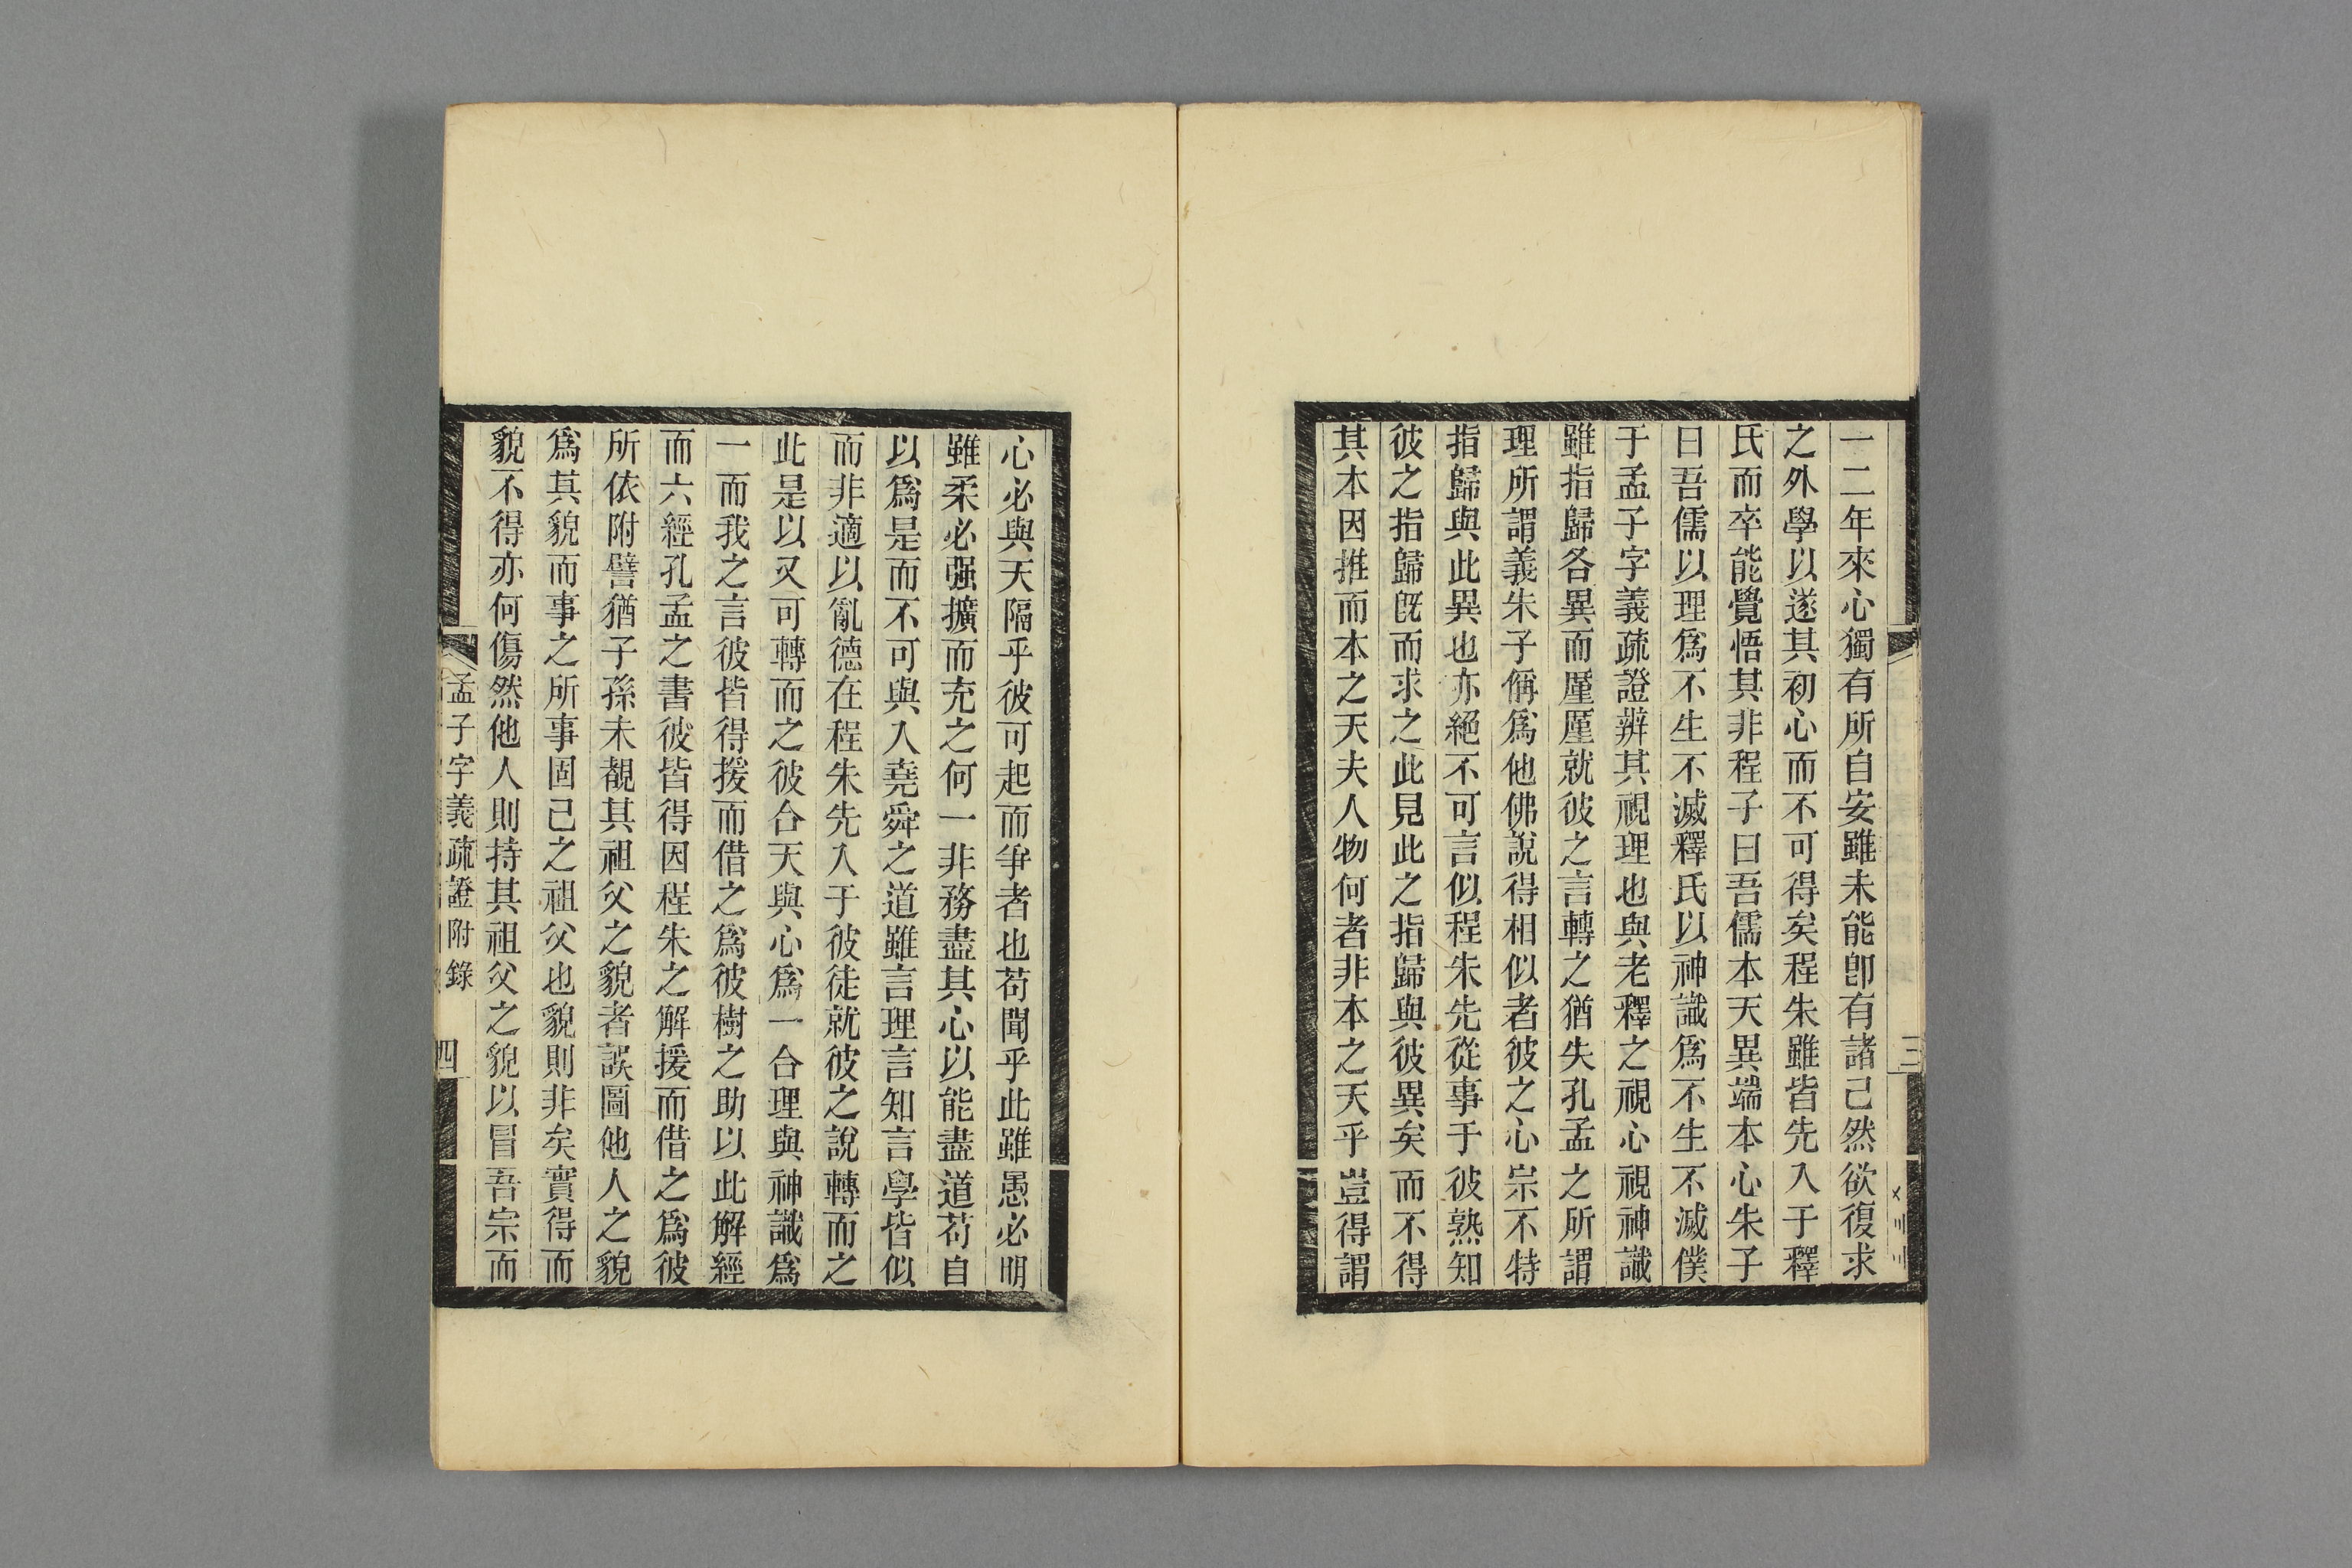 一二年來心獨有所自安雖未能卽有諸己然欲復求
之外學以遂其初心而不可得矣程朱雖皆先入于釋
氏而卒能覺悟其非程子曰吾儒本天異端本心朱子
曰吾儒以理爲不生不滅釋氏以神識爲不生不滅僕
于孟子字義疏證辨其視理也與老釋之視心視神識
雖指歸各異而厪厪就彼之言轉之猶失孔孟之所謂
理所謂義朱子偁爲他佛說得相似者彼之心宗不特
指歸與此異也亦絕不可言似程朱先從事于彼熟知
彼之指歸旣而求之此見此之指歸與彼異矣而不得
其本因推而本之天夫人物何者非本之天乎豈得謂
三
心必與天隔乎彼可起而爭者也苟聞乎此雖愚必明
雖柔必强擴而充之何一非務盡其心以能盡道苟自
以爲是而不可與入堯舜之道雖言理言知言學皆似
而非適以亂德在程朱先入于彼徒就彼之說轉而之
此是以又可轉而之彼合天與心爲一合理與神識爲
一而我之言彼皆得援而借之爲彼樹之助以此解經
而六經孔孟之書彼皆得因程朱之解援而借之爲彼
所依附譬猶子孫未覩其祖父之貌者誤圖他人之貌
爲其貌而事之所事固己之祖父也貌則非矣實得而
貌不得亦何傷然他人則持其祖父之貌以冒吾宗而
孟子字義疏證附錄 四